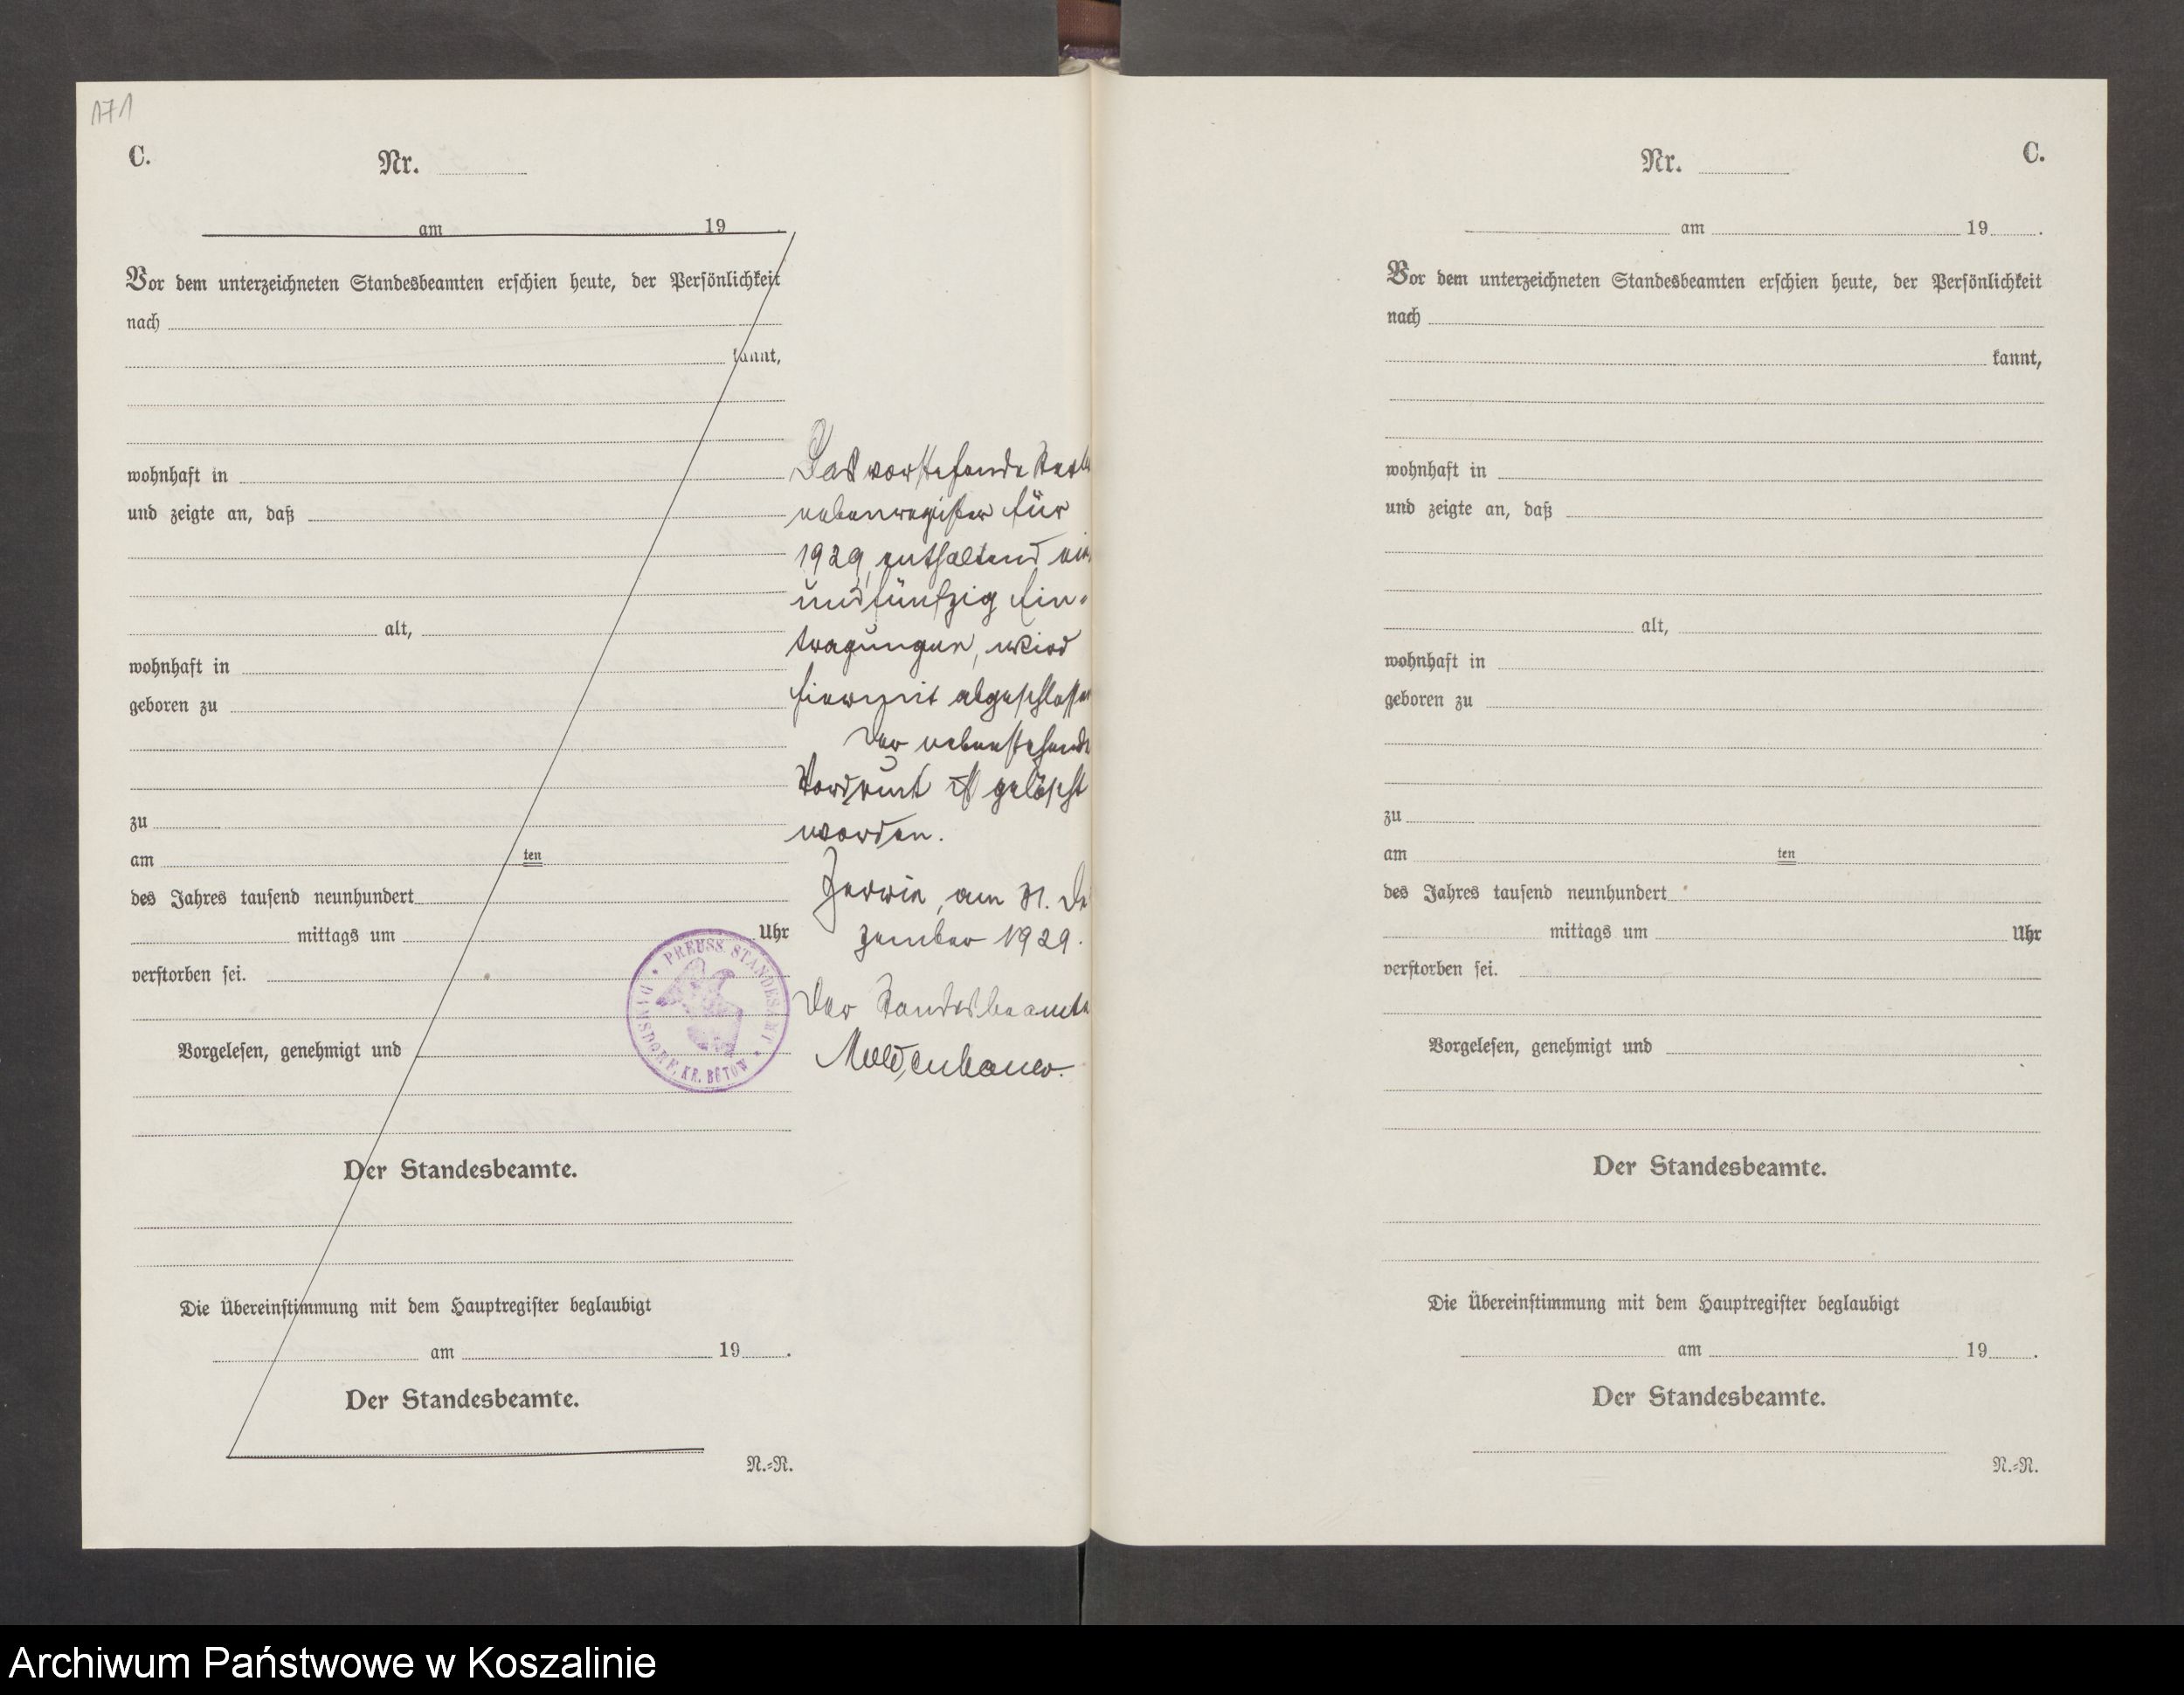 171
C.
Nr.
am 19
Vor dem unterzeichneten Standesbeamten erschien heute, der Persönlichkeit
nach
kannt,
wohnhaft in
und zeigte an, daß
alt,
wohnhaft in
geboren zu
zu
am ten
des Jahres tausend neunhundert
mittags um Uhr
verstorben sei.
Vorgelesen, genehmigt und
Der Standesbeamte.
Die Übereinstimmung mit dem Hauptregister beglaubigt
am 19 .
Der Standesbeamte.
N.=N.
Das vorstehende
nebenregister für
1929, enthaltend
undfünfzig Ein-
tragungen, wird
hiermit abgeschlossen
Der nebenstehende
Vordruck ist gelöscht
worden.
am 31. De
zember 1929.
Der Standesbeamte
PREUSS. STANDESAMT
KR. BÜTOW
Nr.
C.
am 19 .
Vor dem unterzeichneten Standesbeamten erschien heute, der Persönlichkeit
nach
kannt,
wohnhaft in
und zeigte an, daß
alt,
wohnhaft in
geboren zu
zu
am ten
des Jahres tausend neunhundert
mittags um Uhr
verstorben sei.
Vorgelesen, genehmigt und
Der Standesbeamte.
Die Übereinstimmung mit dem Hauptregister beglaubigt
am 19 .
Der Standesbeamte.
N.=N.
Archiwum Państwowe w Koszalinie